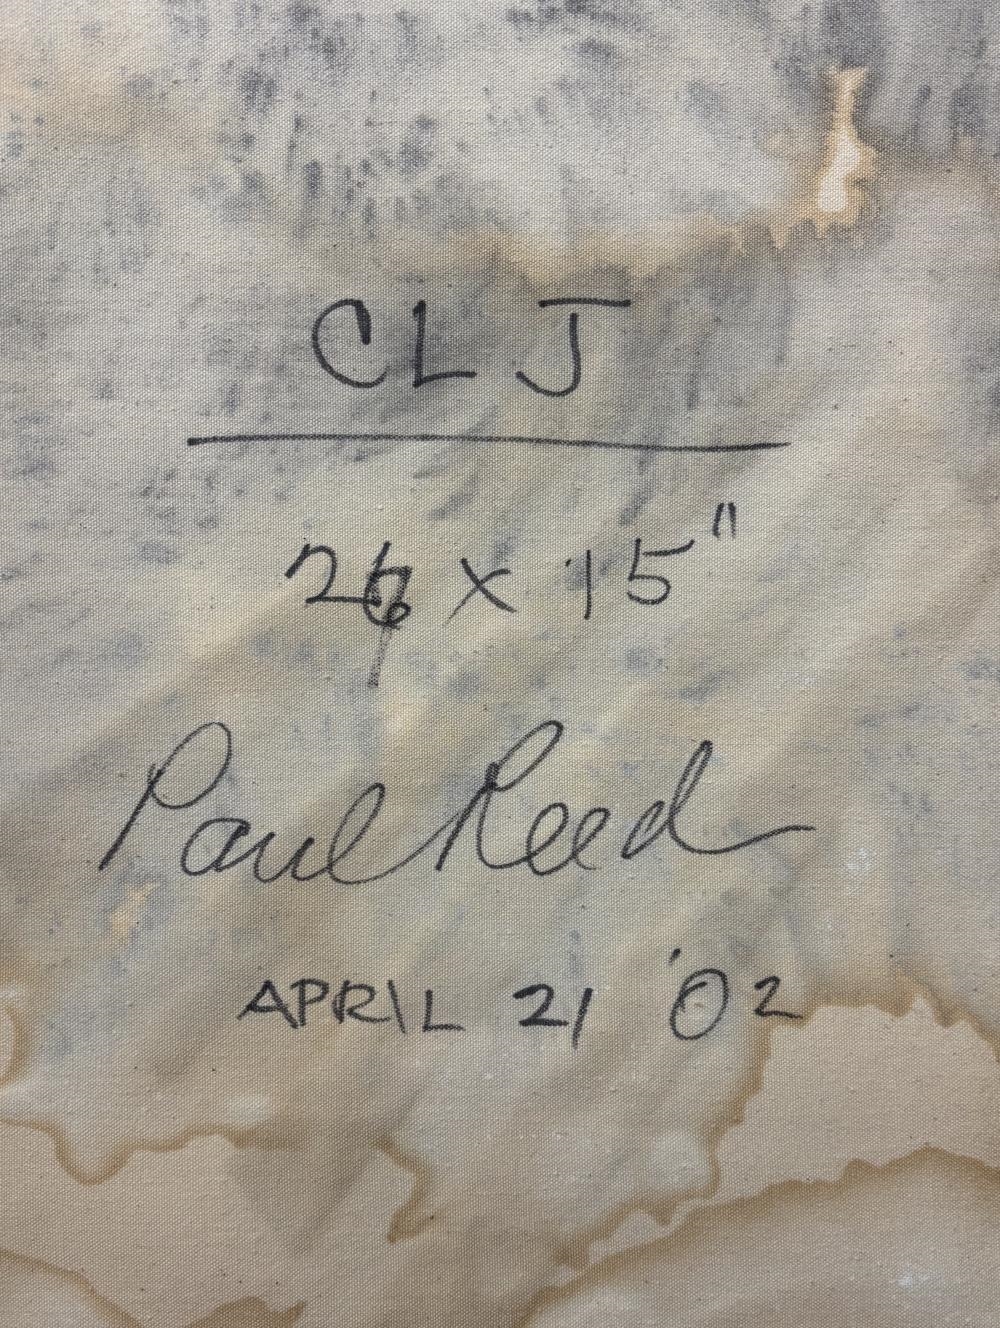 CLJ
26 x 15"
Paul Reed
APRIL 21 '02